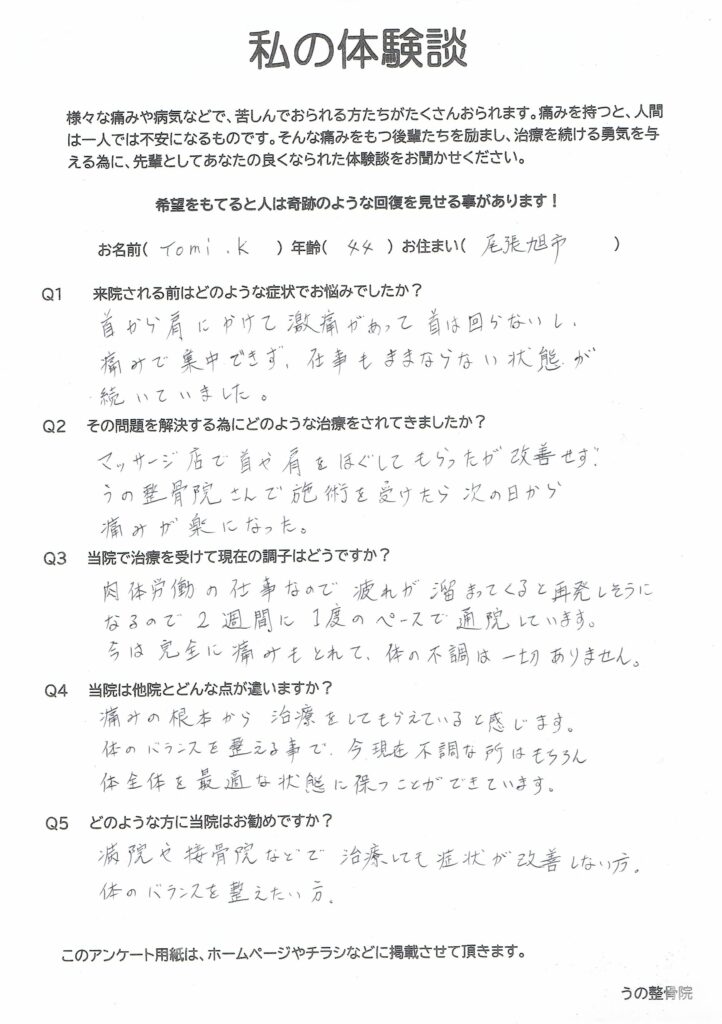 私の体験談
様々な痛みや病気などで、苦しんでおられる方たちがたくさんおられます。痛みを持つと、人間
は一人では不安になるものです。そんな痛みをもつ後輩たちを励まし、治療を続ける勇気を与
える為に、先輩としてあなたの良くなられた体験談をお聞かせください。
希望をもてると人は奇跡のような回復を見せる事があります！
お名前( Tomi.K )年齢( 44 )お住まい( 尾張旭市 )
Q1 来院される前はどのような症状でお悩みでしたか？
首から肩にかけて激痛があって首は回らないし、
痛みで集中できず、仕事もままならない状態が
続いていました。
Q2 その問題を解決する為にどのような治療をされてきましたか？
マッサージ店で首や肩をほぐしてもらったが改善せず、
うの整骨院さんで施術を受けたら次の日から
痛みが楽になった。
Q3 当院で治療を受けて現在の調子はどうですか？
肉体労働の仕事なので疲れが溜まってくると再発しそうに
なるので2週間に1度のペースで通院しています。
今は完全に痛みもとれて、体の不調は一切ありません。
Q4 当院は他院とどんな点が違いますか？
痛みの根本から治療をしてもらえていると感じます。
体のバランスを整える事で、今現在不調な所はもちろん
体全体を最適な状態に保つことができています。
Q5 どのような方に当院はお勧めですか？
病院や接骨院などで治療しても症状が改善しない方。
体のバランスを整えたい方。
このアンケート用紙は、ホームページやチラシなどに掲載させて頂きます。
うの整骨院